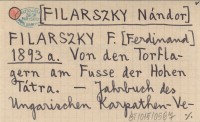 [FILARSZKY Nándor]
FILARSZKY F. [Ferdinand]
1893 a. Von den Torfla-
gern am Fusse der Hohen
Tátra. — Jahrbuch des
Ungarischen Karpathen-Ve-